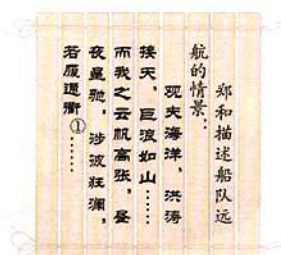 郑和描述船队远
航的情景：
观夫海洋，洪涛
接天，巨浪如山……
而我之云帆高张，昼
夜星驰，涉波狂澜，
若履通衢①……